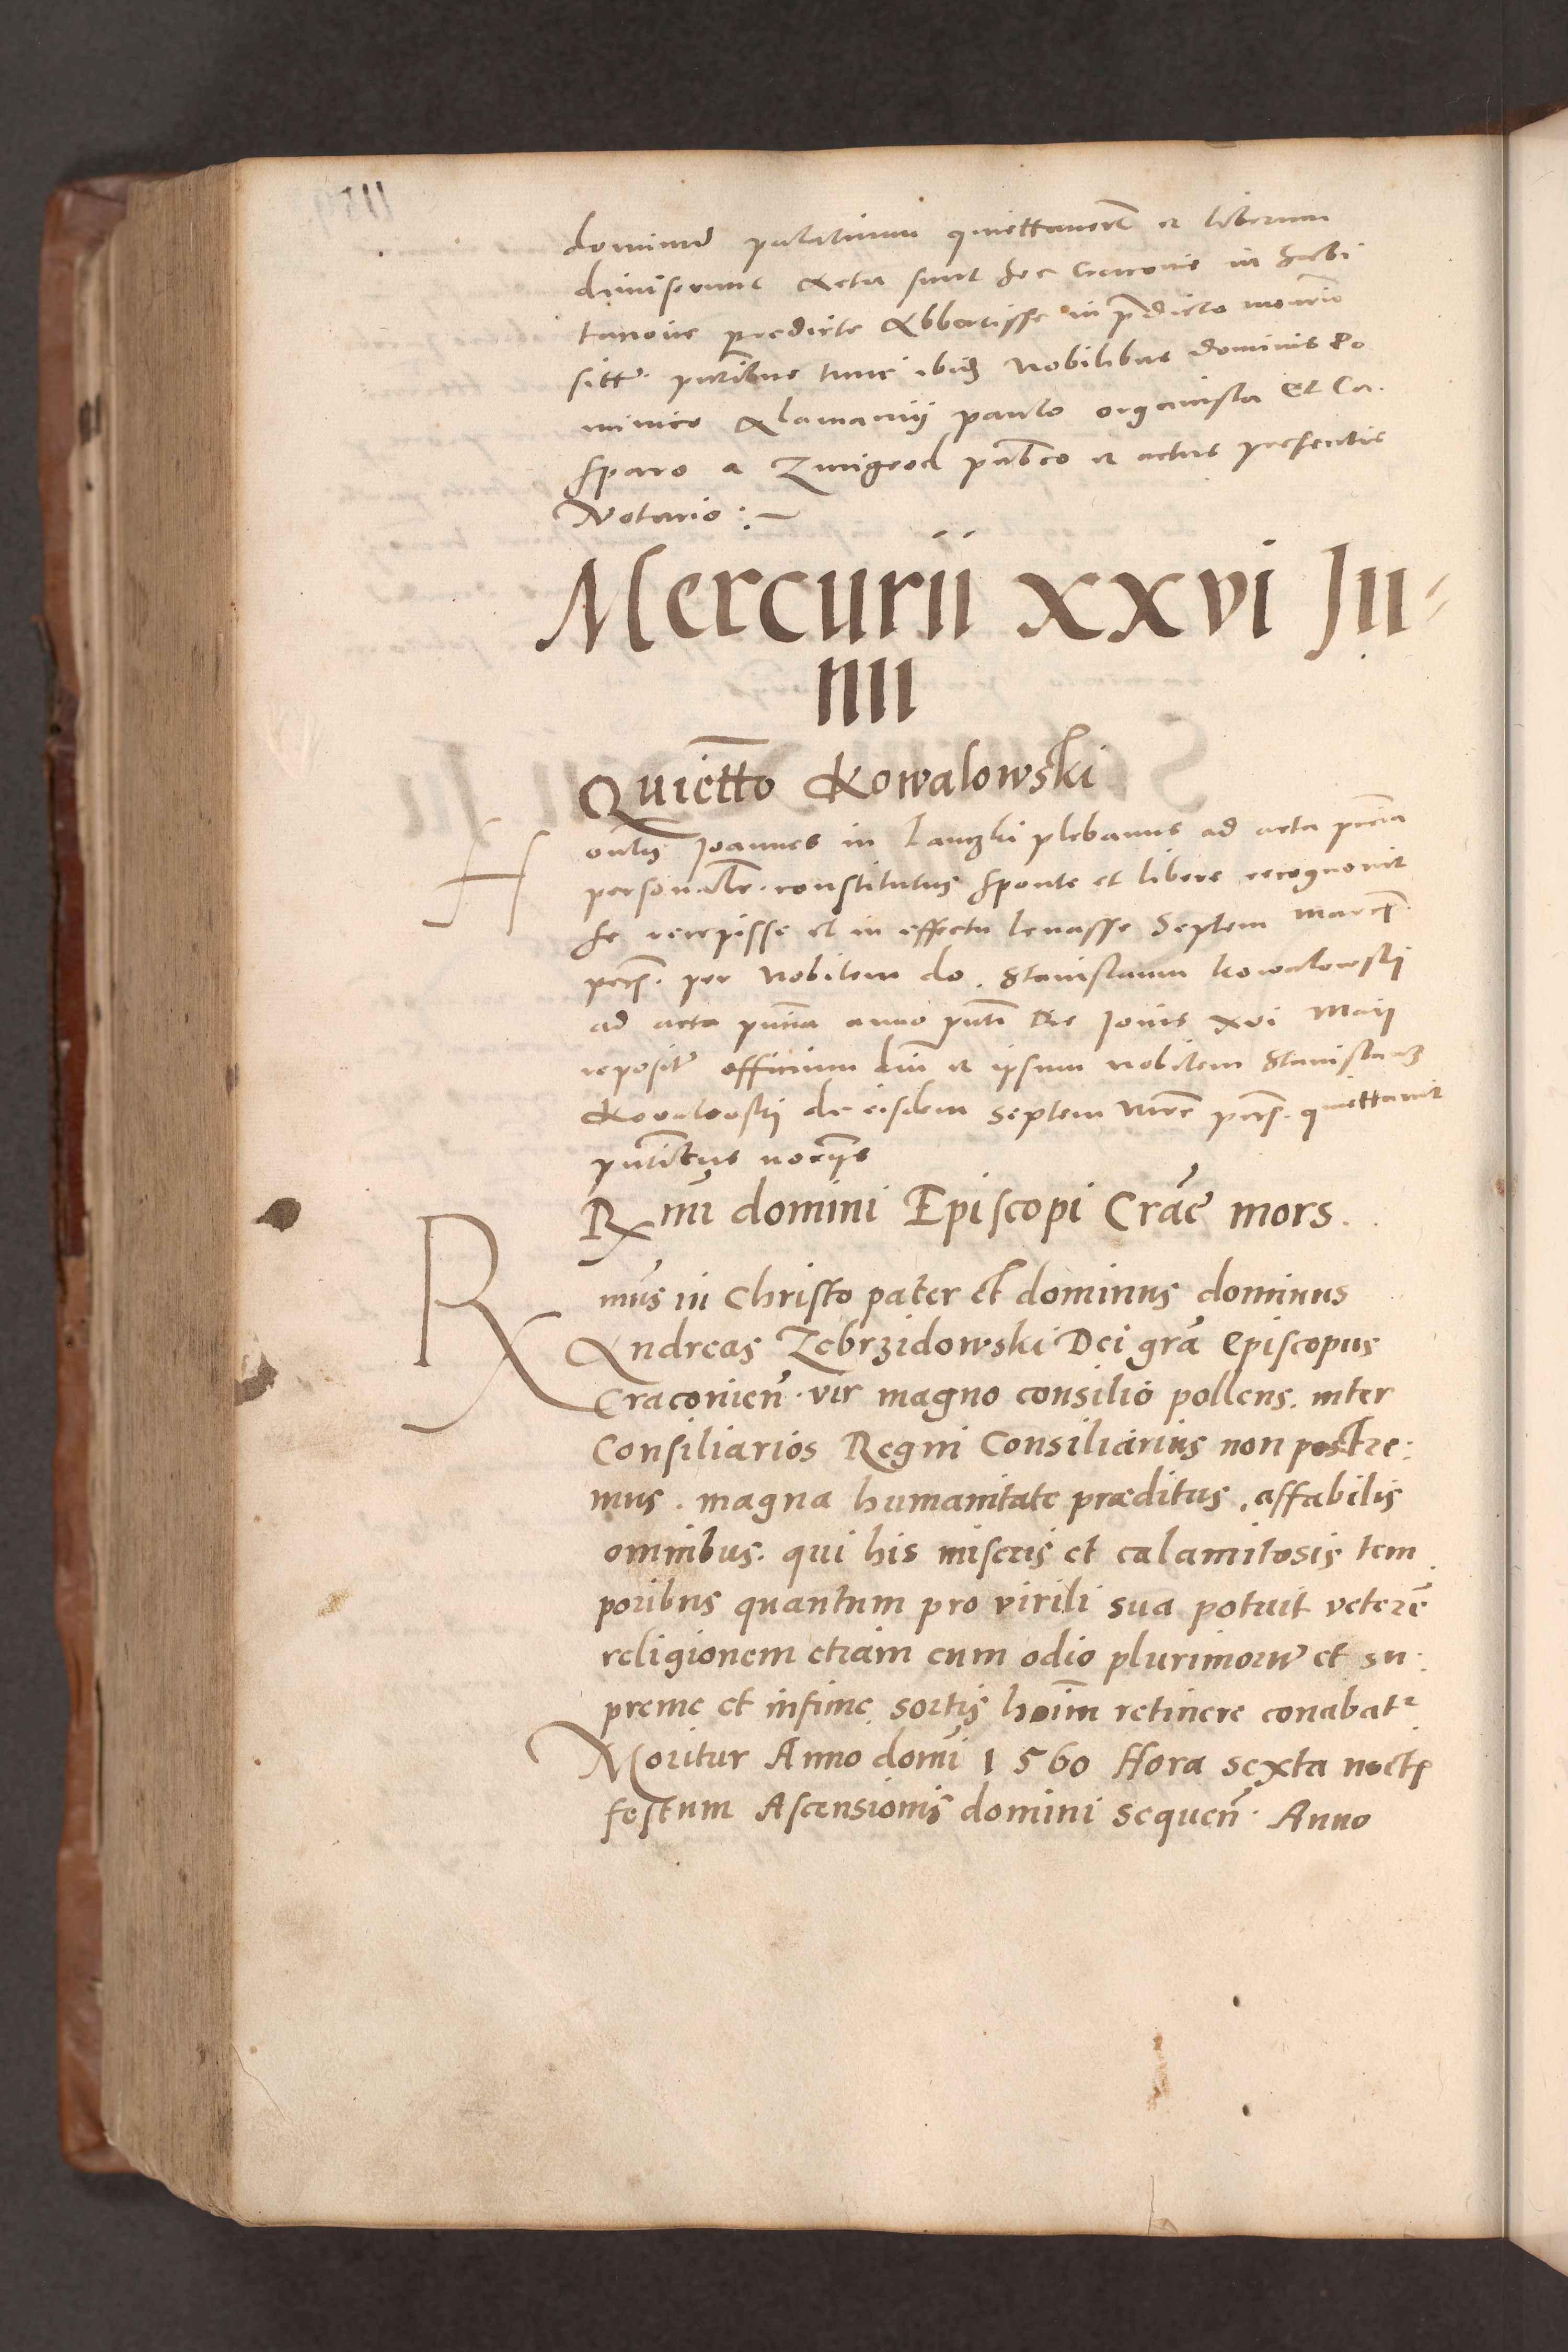 dominum palatinum quiettauerũt et liberum
dimiserunt Acta sunt hec Cracouie in habi
tacione predicte Abbatisse in p̃dicto monrio
sitt. pntibus tunc ibid Nobilibus dominis Do
minico Alamanij paulo organista Et Ca.
sparo a Zmigrod pubco et actus presentis
Notario :—
Mercurii xxvi Ju-
nii
Quietto Kowalowski
H
onlis Joannes in Lanczki plebanus ad acta pntia
personalr. constitutus sponte et libere recognouit
se recepisse et in effectu leuasse Septem marcs
pecs. per Nobilem do. Stanislaum Kowalowskij
ad acta pntia anno pnti Die Jouis xvi Maij
reposit officium dni et ipsum nobilem Stanislaum
Kowalowskij de eisdem septem mrc pecs. quiettauit
pntibus notariis
Rx mi domini Episcopi Crac mors.
Rx
mus in Christo pater et dominus dominus
Andreas Zebrzidowski Dei gra Episcopus
Cracouien. vir magno consilio pollens. inter
Consiliarios Regni Consiliarius non postre:
mus. magna humanitate præditus, affabilis
omnibus. qui his miseris et calamitosis tem
poribus quantum pro virili sua potuit veterẽ
religionem etiam cum odio plurimorum et su:
preme et infime sortis hoim retinere conabatr
Moritur Anno domi 1560 Hora sexta noctis
festum Ascensionis domini sequen. Anno